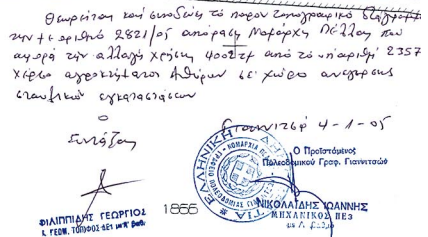 Θεωρείται και συνοδεύει το παρον τοπογραφικό διάγραμμα
την με αριθμό 2821/05 απόφαση Νομάρχη Πέλλας που
αφορά την αλλαγή χρήσης 4002τμ από το υπ αριθμ 2357
αγροκτήματος Αθύρων σε χώρο ανεγερσης
σταυλικών εγκαταστάσεων
Ο
Συντάξας
Γιαννιτσά 4-1-05
Ο Προϊστάμενος
Πολεοδομικού Γραφ. Γιαννιτσών
ΕΛΛΗΝΙΚΗ ΔΗΜΟΚΡΑΤΙΑ
ΝΟΜΑΡΧΙΑ
ΝΙΚΟΛΑΪΔΗΣ ΙΩΑΝΝΗΣ
ΜΗΧΑΝΙΚΟΣ ΠΕ3
ΦΙΛΙΠΠΙΔΗΣ ΓΕΩΡΓΙΟΣ
1866